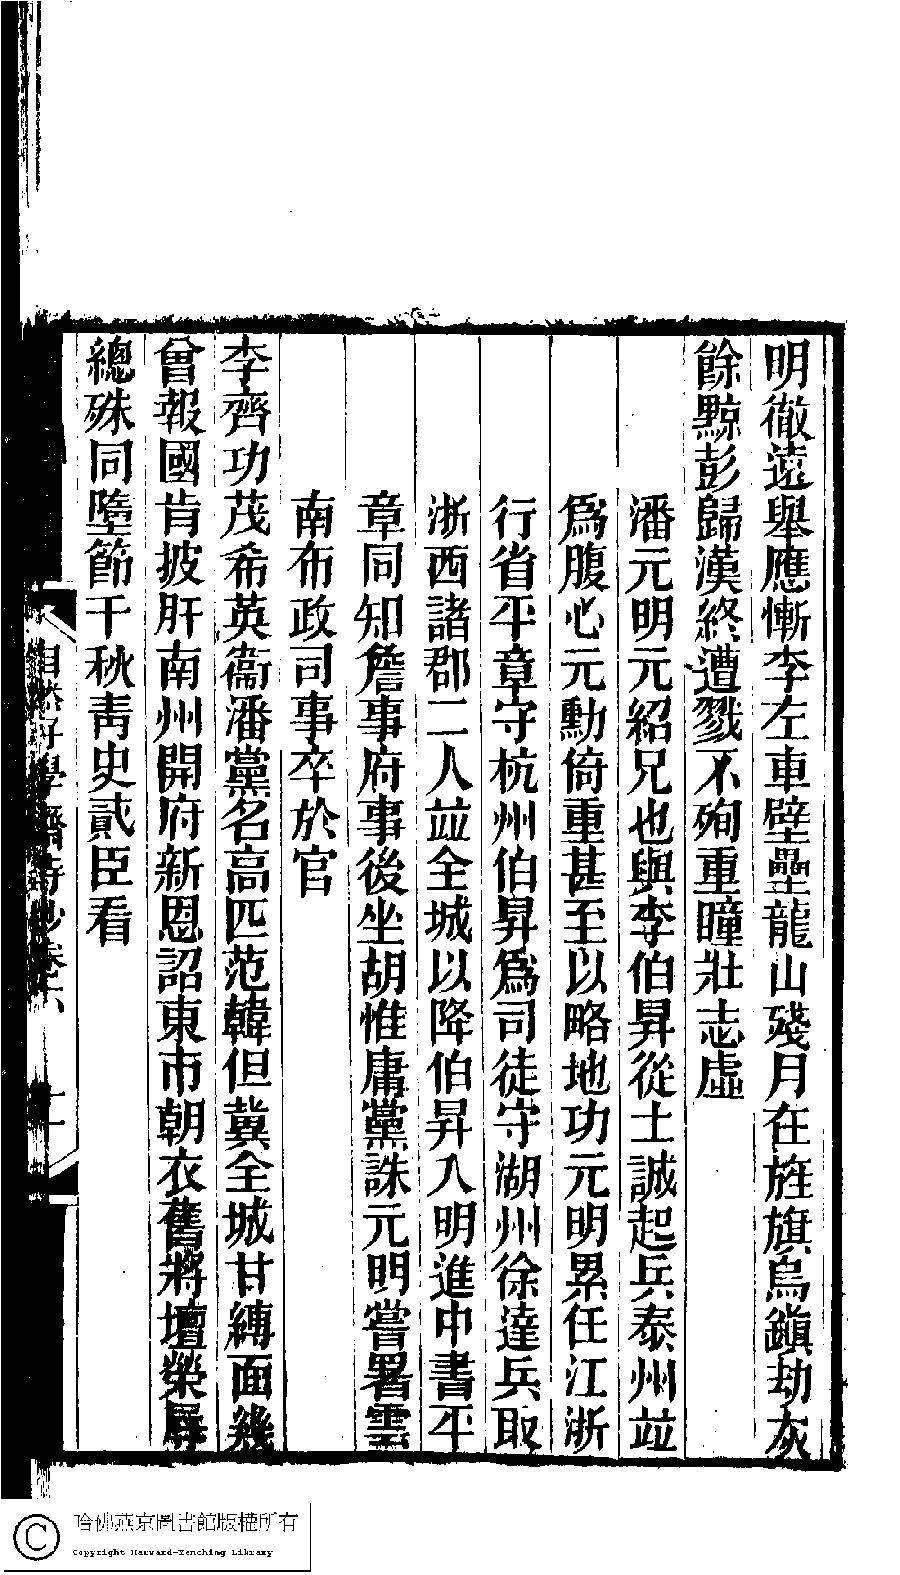 明徹遠舉應慚李左車壁壘龍山殘月在旌旗烏鎮劫灰
餘黥彭歸漢終遭戮不殉重瞳壯志虛
潘元明元紹兄也與李伯昇從士誠起兵泰州竝
爲腹心元勳倚重甚至以略地功元明累任江浙
行省平章守杭州伯昇爲司徒守湖州徐達兵取
浙西諸郡二人竝全城以降伯昇入明進中書平
章同知詹事府事後坐胡惟庸黨誅元明嘗署雲
南布政司事卒於官
李齊功茂希英衞潘黨名高匹范韓但冀全城甘縛面幾
曾報國肯披肝南州開府新恩詔東市朝衣舊將壇榮辱
總殊同墮節千秋靑史貳臣看
自然好學齋詩鈔卷六
十一
哈佛燕京圖書館版權所有
Copyright Harvard-Yenching Library